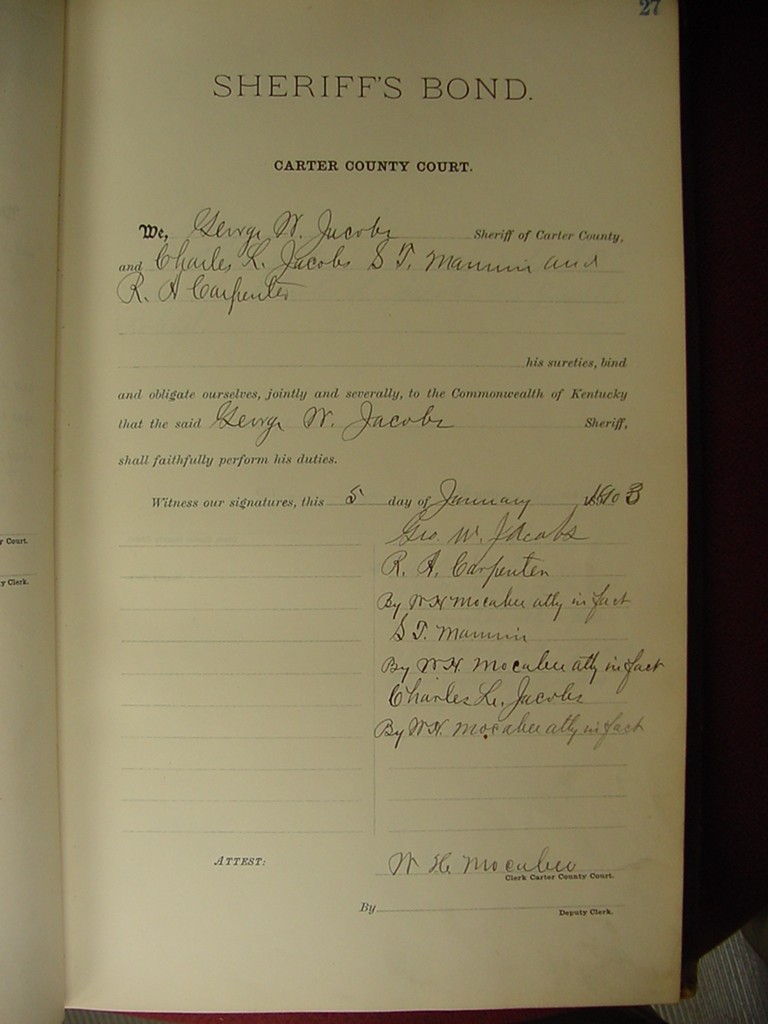 27
SHERIFF'S BOND.
CARTER COUNTY COURT.
We, George W. Jacobs Sheriff of Carter County,
and Charles L. Jacobs S T. Mannin and
R. A Carpenter
his sureties, bind
and obligate ourselves, jointly and severally, to the Commonwealth of Kentucky
that the said George W. Jacobs Sheriff,
shall faithfully perform his duties.
Witness our signatures, this 5 day of January 1903
Geo. W. Jacobs
R. A. Carpenter
By W H Mocabee atty in fact
S T. Mannin
By W.H. Mocabee atty in fact
Charles L. Jacobs
By W.H. Mocabee atty in fact
ATTEST: W H. Mocabee
Clerk Carter County Court.
By Deputy Clerk.
y Court.
y Clerk.